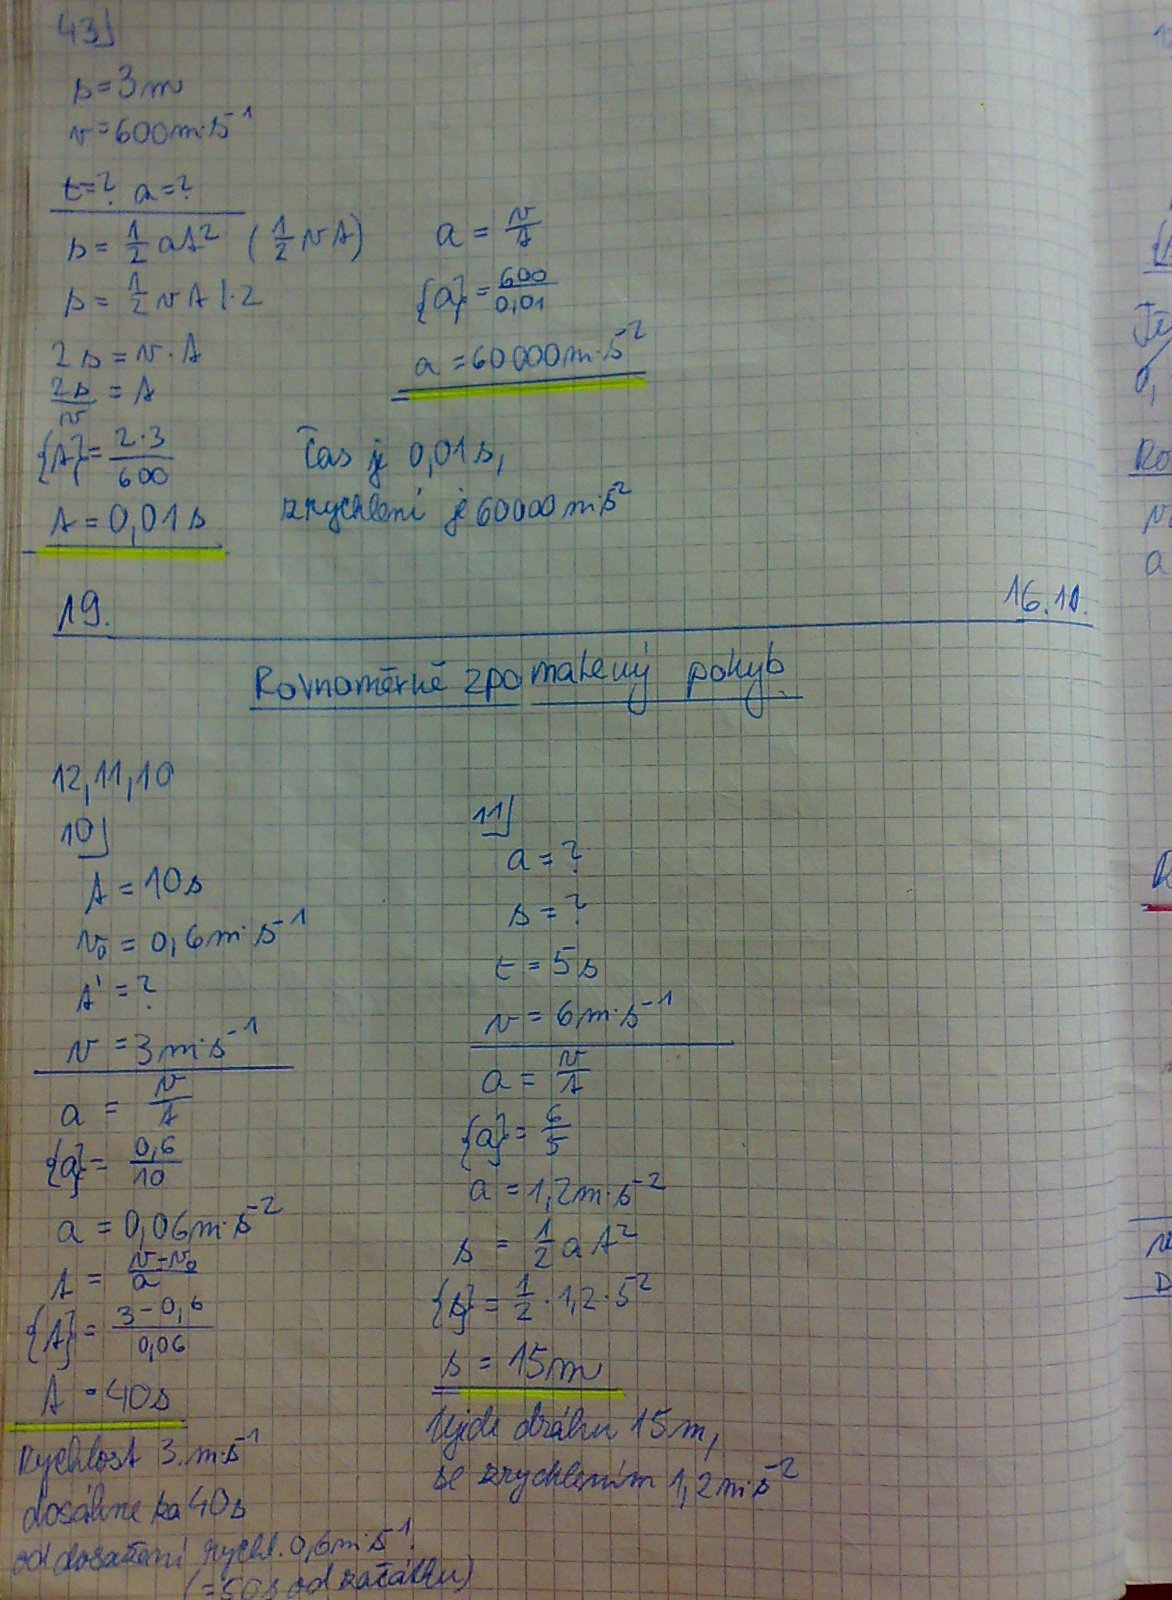 43)
s = 3 m
v = 600 m·s⁻¹
t = ? a = ?
s = 1/2 at² (1/2 vt)
s = 1/2 vt |·2
2s = v·t
2s/v = t
{t} = 2·3/600
t = 0,01 s
a = v/t
{a} = 600/0,01
a = 60 000 m·s⁻²
Čas je 0,01 s,
zrychlení je 60000 m·s⁻²
19. 16.10.
Rovnoměrně zpomalený pohyb
12, 11, 10
10)
t = 10 s
v₀ = 0,6 m·s⁻¹
t' = ?
v = 3 m·s⁻¹
a = v/t
{a} = 0,6/10
a = 0,06 m·s⁻²
t = v-v₀/a
{t} = 3-0,6/0,06
t = 40 s
Rychlost 3 m·s⁻¹
dosáhne za 40 s
od dosažení rychl. 0,6 m·s⁻¹.
(= 50 s od začátku)
11)
a = ?
s = ?
t = 5 s
v = 6 m·s⁻¹
a = v/t
{a} = 6/5
a = 1,2 m·s⁻²
s = 1/2 at²
{s} = 1/2·1,2·5²
s = 15 m
Ujede dráhu 15 m,
se zrychlením 1,2 m·s⁻²